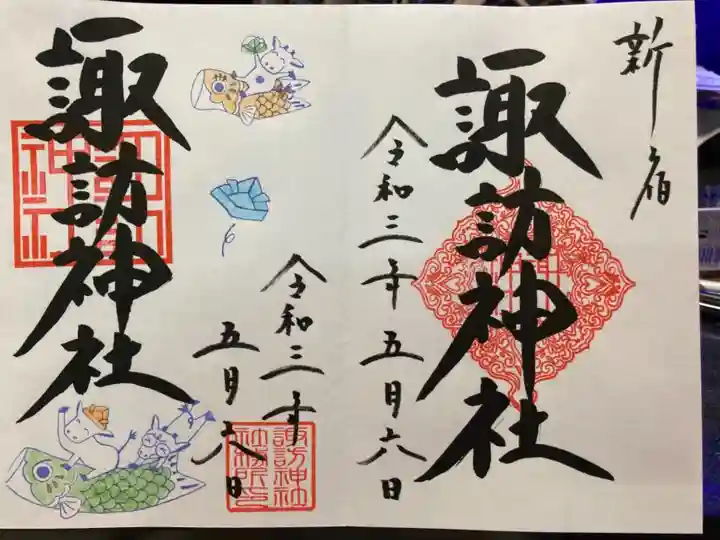 新宿
諏訪神社
令和三年五月六日
令和三年
五月六日
諏訪神社
社務所之印
諏訪神社